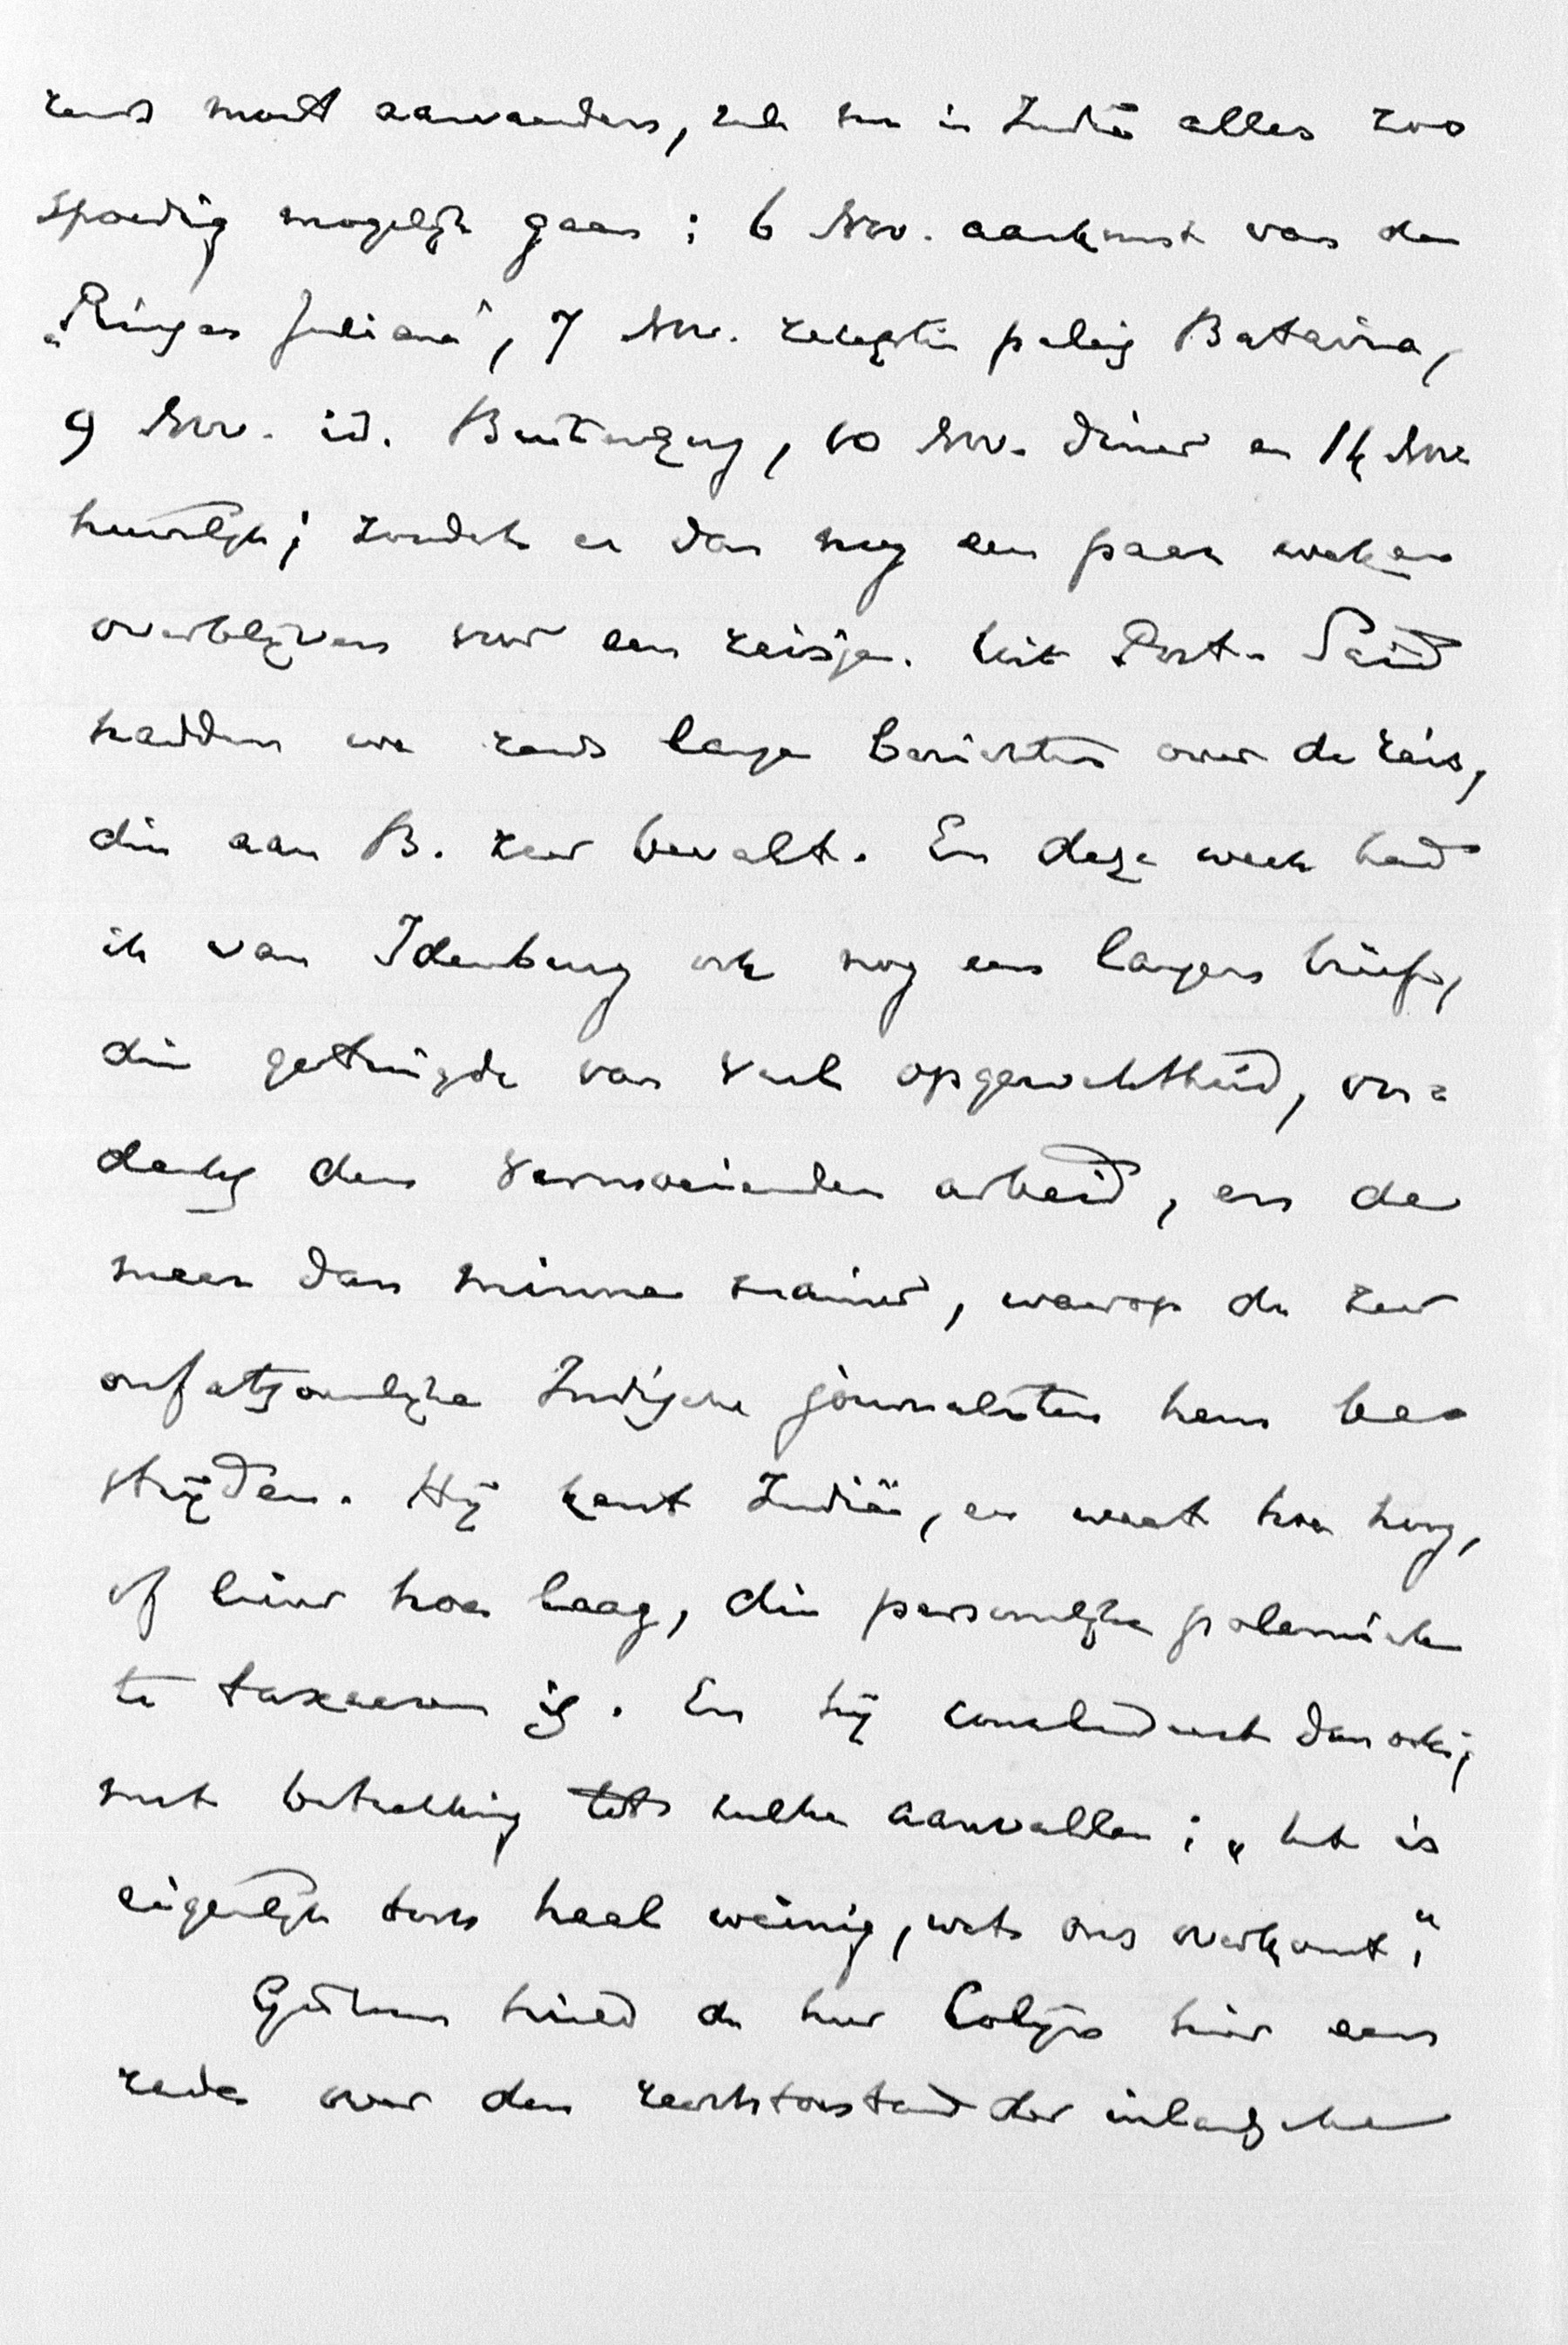 reis moet aanvaarden, zal nu in Indië alles zoo
spoedig mogelijk gaan: 6 Nov. aankomst van de
„Prinses Juliana", 7 Nov. receptie paleis Batavia,
9 Nov. id. Buitenzorg, 10 Nov. diner en 14 Nov.
huwelijk; zoodat er dan nog een paar weken
overblijven voor een reisje. Uit Port-Said
hadden we reeds lange berichten over de reis,
die aan B. zeer bevalt. En deze week had
ik van Idenburg ook nog een langen brief,
die getuigde van veel opgewektheid, on=
danks den vermoeienden arbeid, en de
meer dan minne manier, waarop de zeer
onfatsoenlijke Indische journalisten hem be-
strijden. Hij kent Indië, en weet hoe hoog,
of liever hoe laag, die persoonlijke polemiek
te taxeeren is. En hij concludeert dan ook,
met betrekking tot zulke aanvallen: „het is
eigenlijk toch heel weinig, wat ons overkomt".
Gisteren hield de heer Colijn hier een
rede over den rechtstoestand der inlandsche